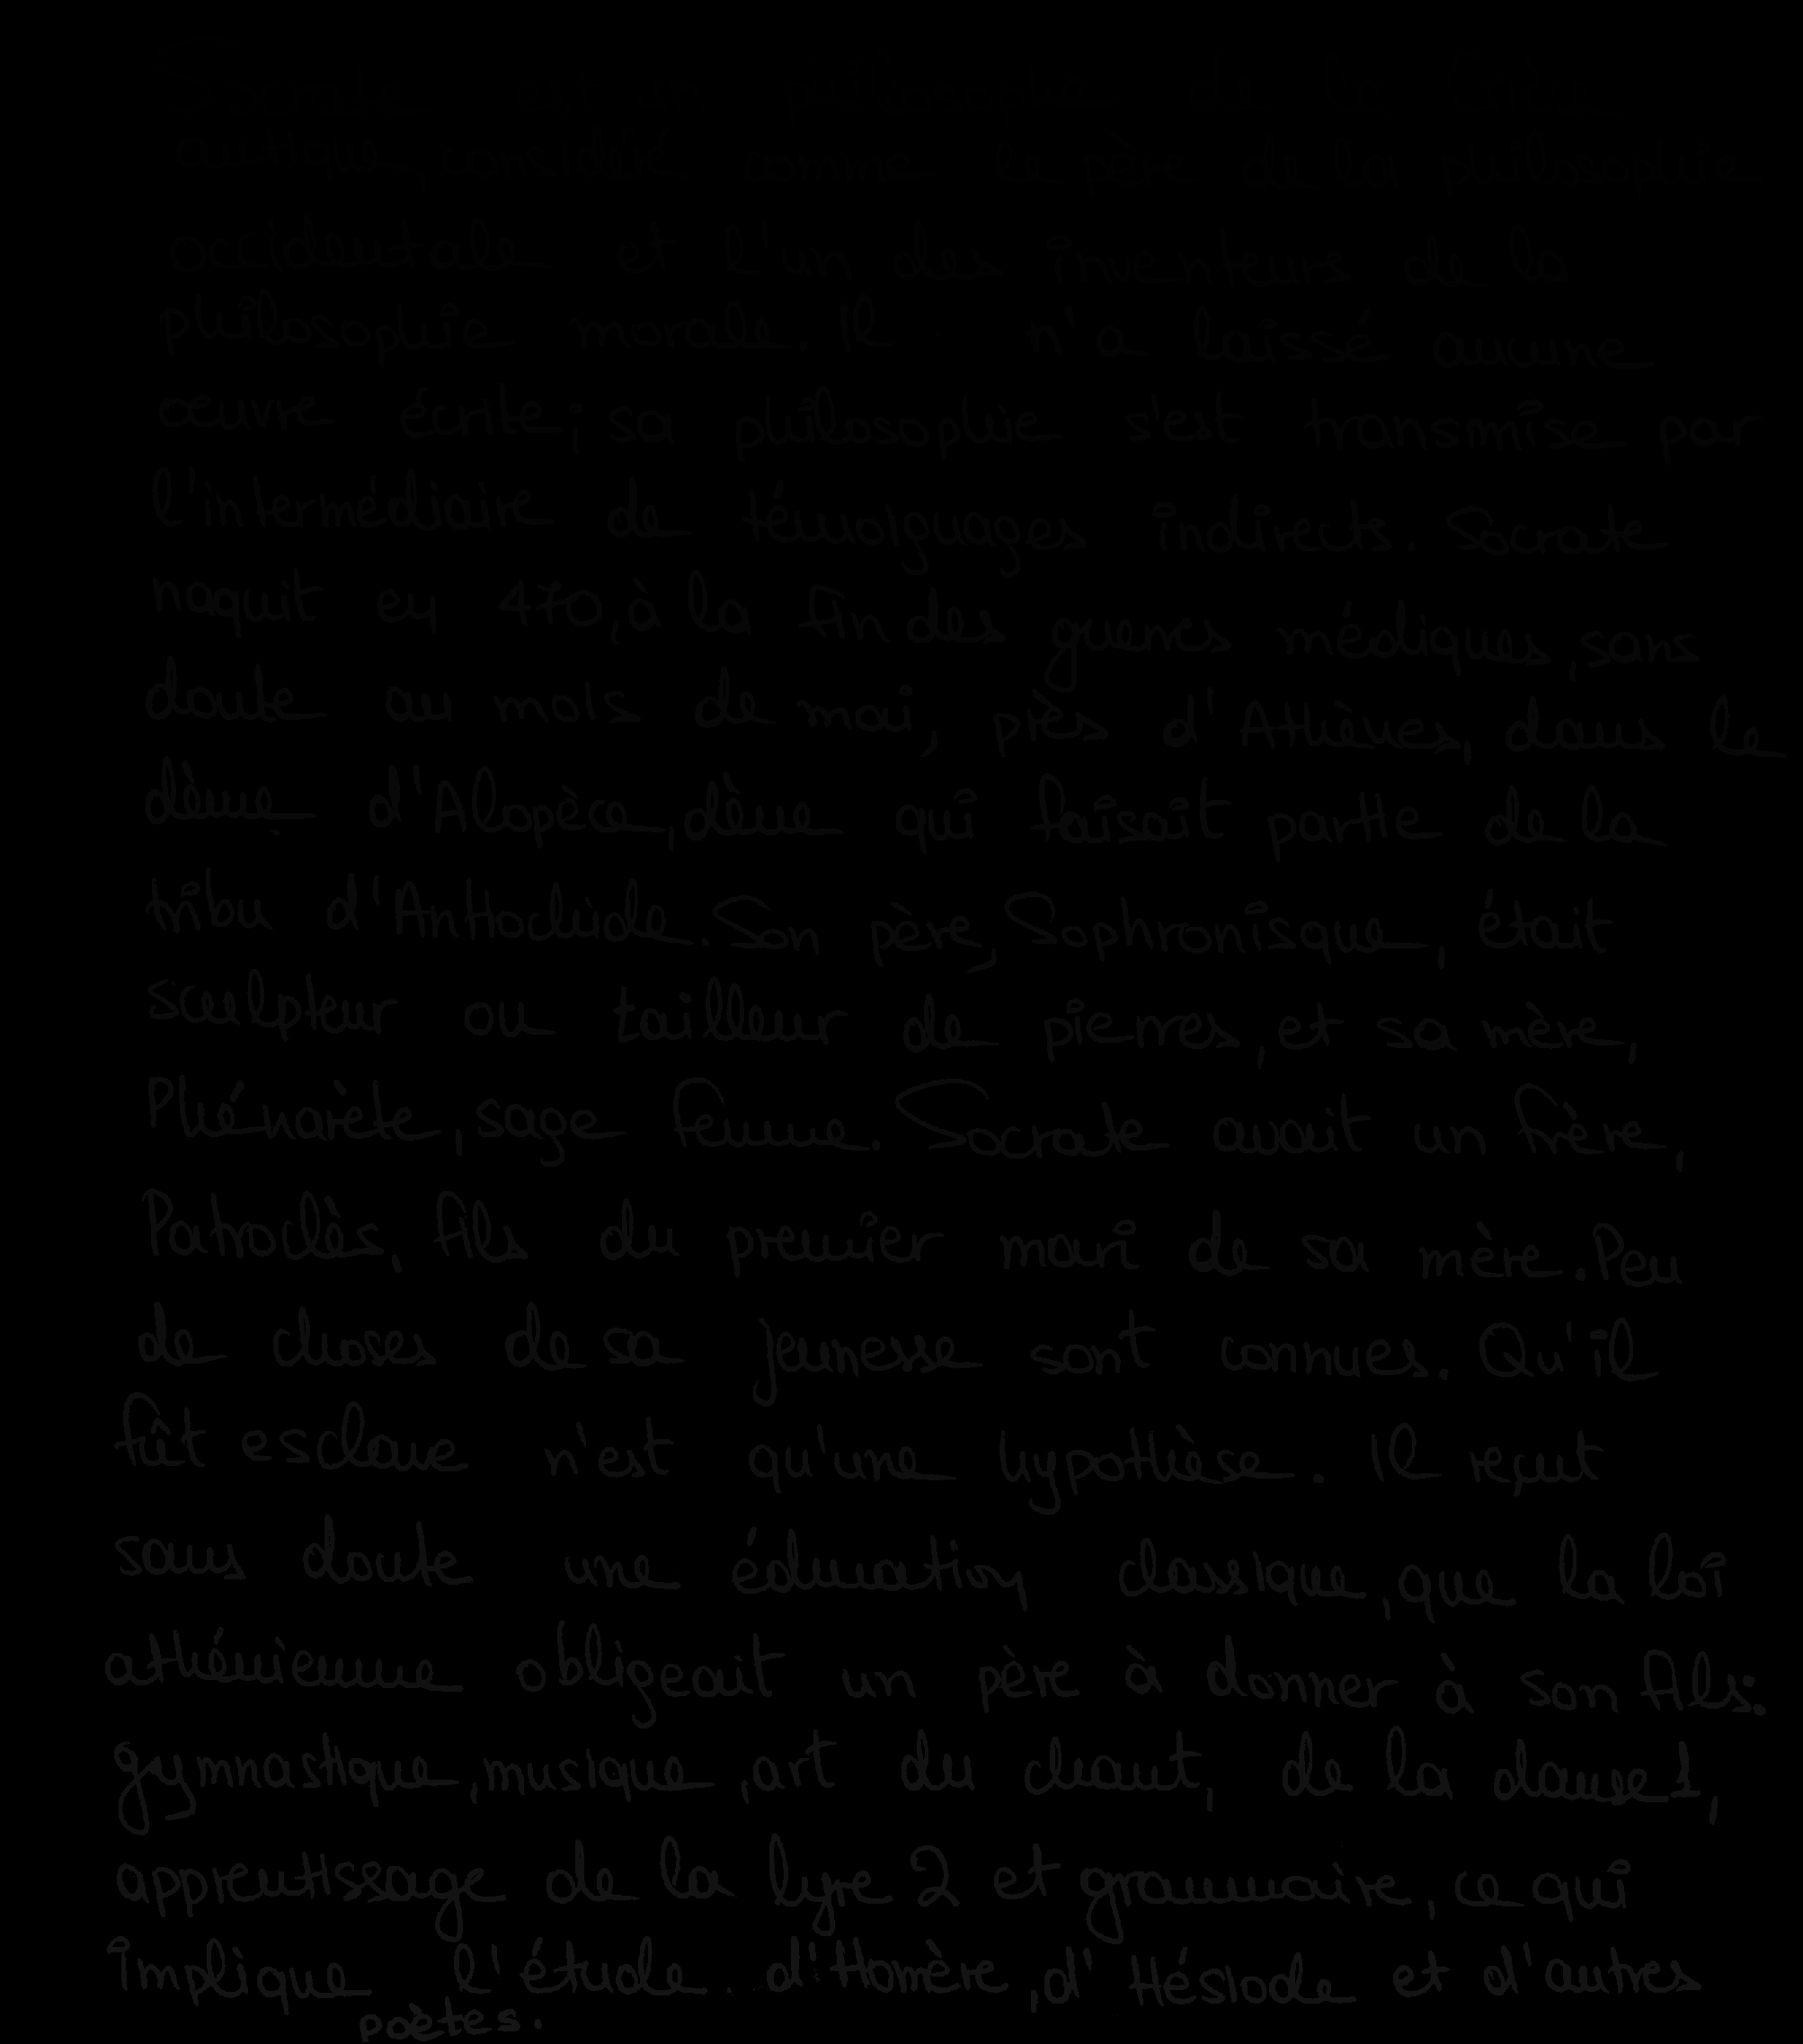 Socrate est un philosophe de la Grèce
antique, considéré comme le père de la philosophie
occidentale et l'un des inventeurs de la
philosophie morale. Il n'a laissé aucune
œuvre écrite; sa philosophie s'est transmise par
l'intermédiaire de témoignages indirects. Socrate
naquit en 470, à la fin des guerres médiques, sans
doute au mois de mai, près d'Athènes, dans le
dème d'Alopèce, dème qui faisait partie de la
tribu d'Antiochide. Son père, Sophronisque, était
sculpteur ou tailleur de pierres, et sa mère,
Phénarète, sage femme. Socrate avait un frère,
Patroclès, fils du premier mari de sa mère. Peu
de choses de sa jeunesse sont connues. Qu'il
fût esclave n'est qu'une hypothèse. Il reçut
sans doute une éducation classique, que la loi
athénienne obligeait un père à donner à son fils:
gymnastique, musique, art du chant, de la danse1,
apprentissage de la lyre 2 et grammaire, ce qui
implique l'étude d'Homère, d'Hésiode et d'autres
poètes.